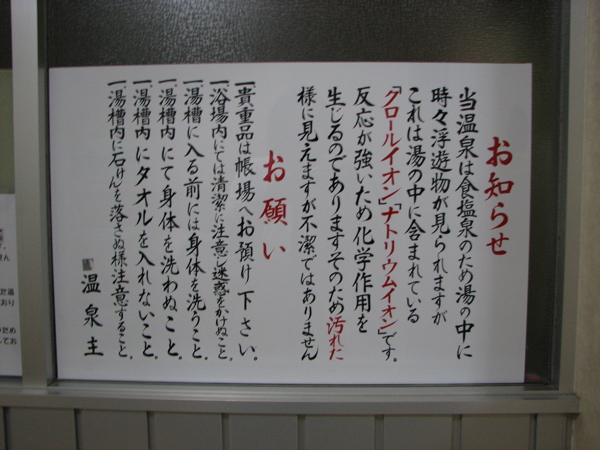 お知らせ
当温泉は食塩泉のため湯の中に
時々浮遊物が見られますが
これは湯の中に含まれている
「クロールイオン」「ナトリウムイオン」です。
反応が強いため化学作用を
生じるのでありますそのため汚れた
様に見えますが不潔ではありません
お願い
一、貴重品は帳場へお預け下さい。
一、浴場内にては清潔に注意し迷惑をかけぬこと。
一、湯槽に入る前には身体を洗うこと。
一、湯槽内にて身体を洗わぬこと。
一、湯槽内にタオルを入れないこと。
一、湯槽内に石けんを落さぬ様注意すること。
温泉主